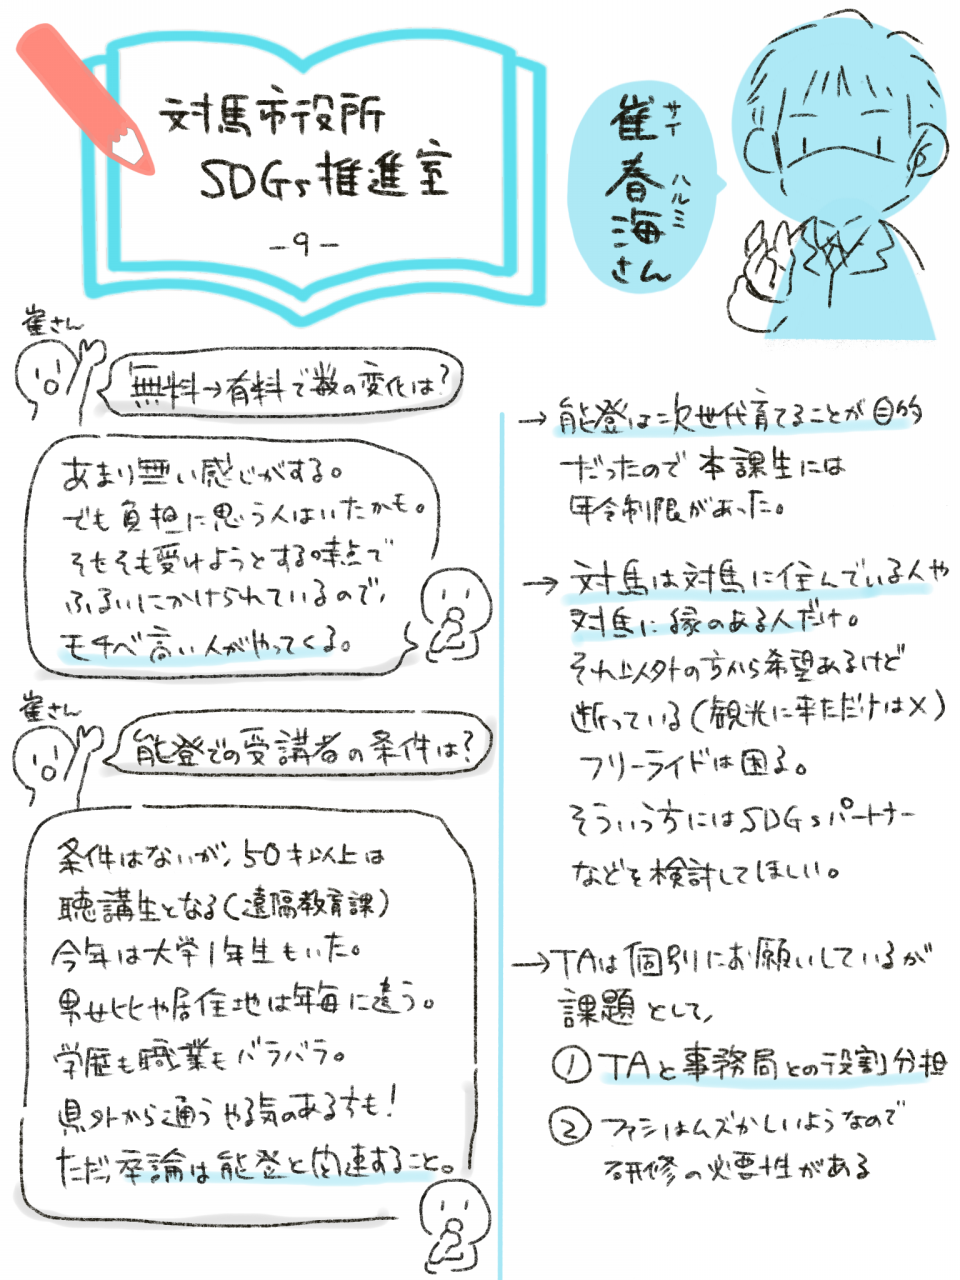 対馬市役所
SDGs推進室
-9-
崔春海さん
サイ
ハルミ
崔さん
無料→有料で数の変化は?
あまり無い感じがする。
でも負担に思う人はいたかも。
そもそも受けようとする時点で
ふるいにかけられているので、
モチベ高い人がやってくる。
崔さん
能登での受講者の条件は?
条件はないが、50才以上は
聴講生となる(遠隔教育課)
今年は大学1年生もいた。
男女比や居住地は年毎に違う。
学歴も職業もバラバラ。
県外から通うやる気のある方も!
ただ卒論は能登と関連すること。
→能登は次世代育てることが目的
だったので本課生には
年令制限があった。
→対馬は対馬に住んでいる人や
対馬に縁のある人だけ。
それ以外の方から希望あるけど
断っている(観光に来ただけは×)
フリーライドは困る。
そういう方にはSDGsパートナー
などを検討してほしい。
→TAは個別にお願いしているが
課題として、
①TAと事務局との役割分担
②ファシはムズかしいようなので
研修の必要性がある